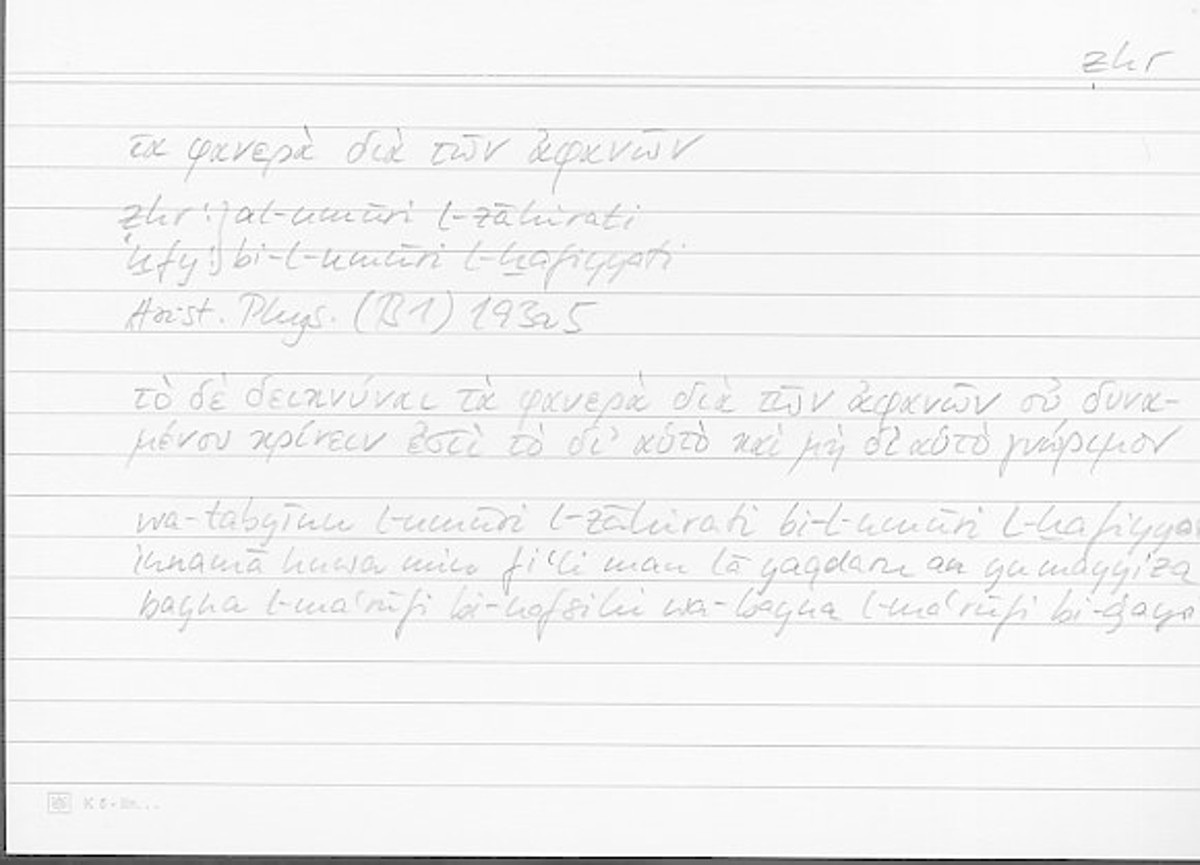 ẓhr
τὰ φανερὰ διὰ τῶν ἀφανῶν
ẓhr:} al-umūri l-ẓāhirati
ḫfy:} bi-l-umūri l-ḫafiyyati
Arist. Phys. (B1) 193a5
τὸ δὲ δεικνύναι τὰ φανερὰ διὰ τῶν ἀφανῶν οὐ δυνα-
μένου κρίνειν ἐστὶ τὸ δι' αὑτὸ καὶ μὴ δι' αὑτὸ γνώριμον
wa-tabyīnu l-umūri l-ẓāhirati bi-l-umūri l-ḫafiyya
innamā huwa min fiʿli man lā yaqdaru an yumayyiza
bayna l-maʿrūfi bi-nafsihi wa-bayna l-maʿrūfi bi-ġayr